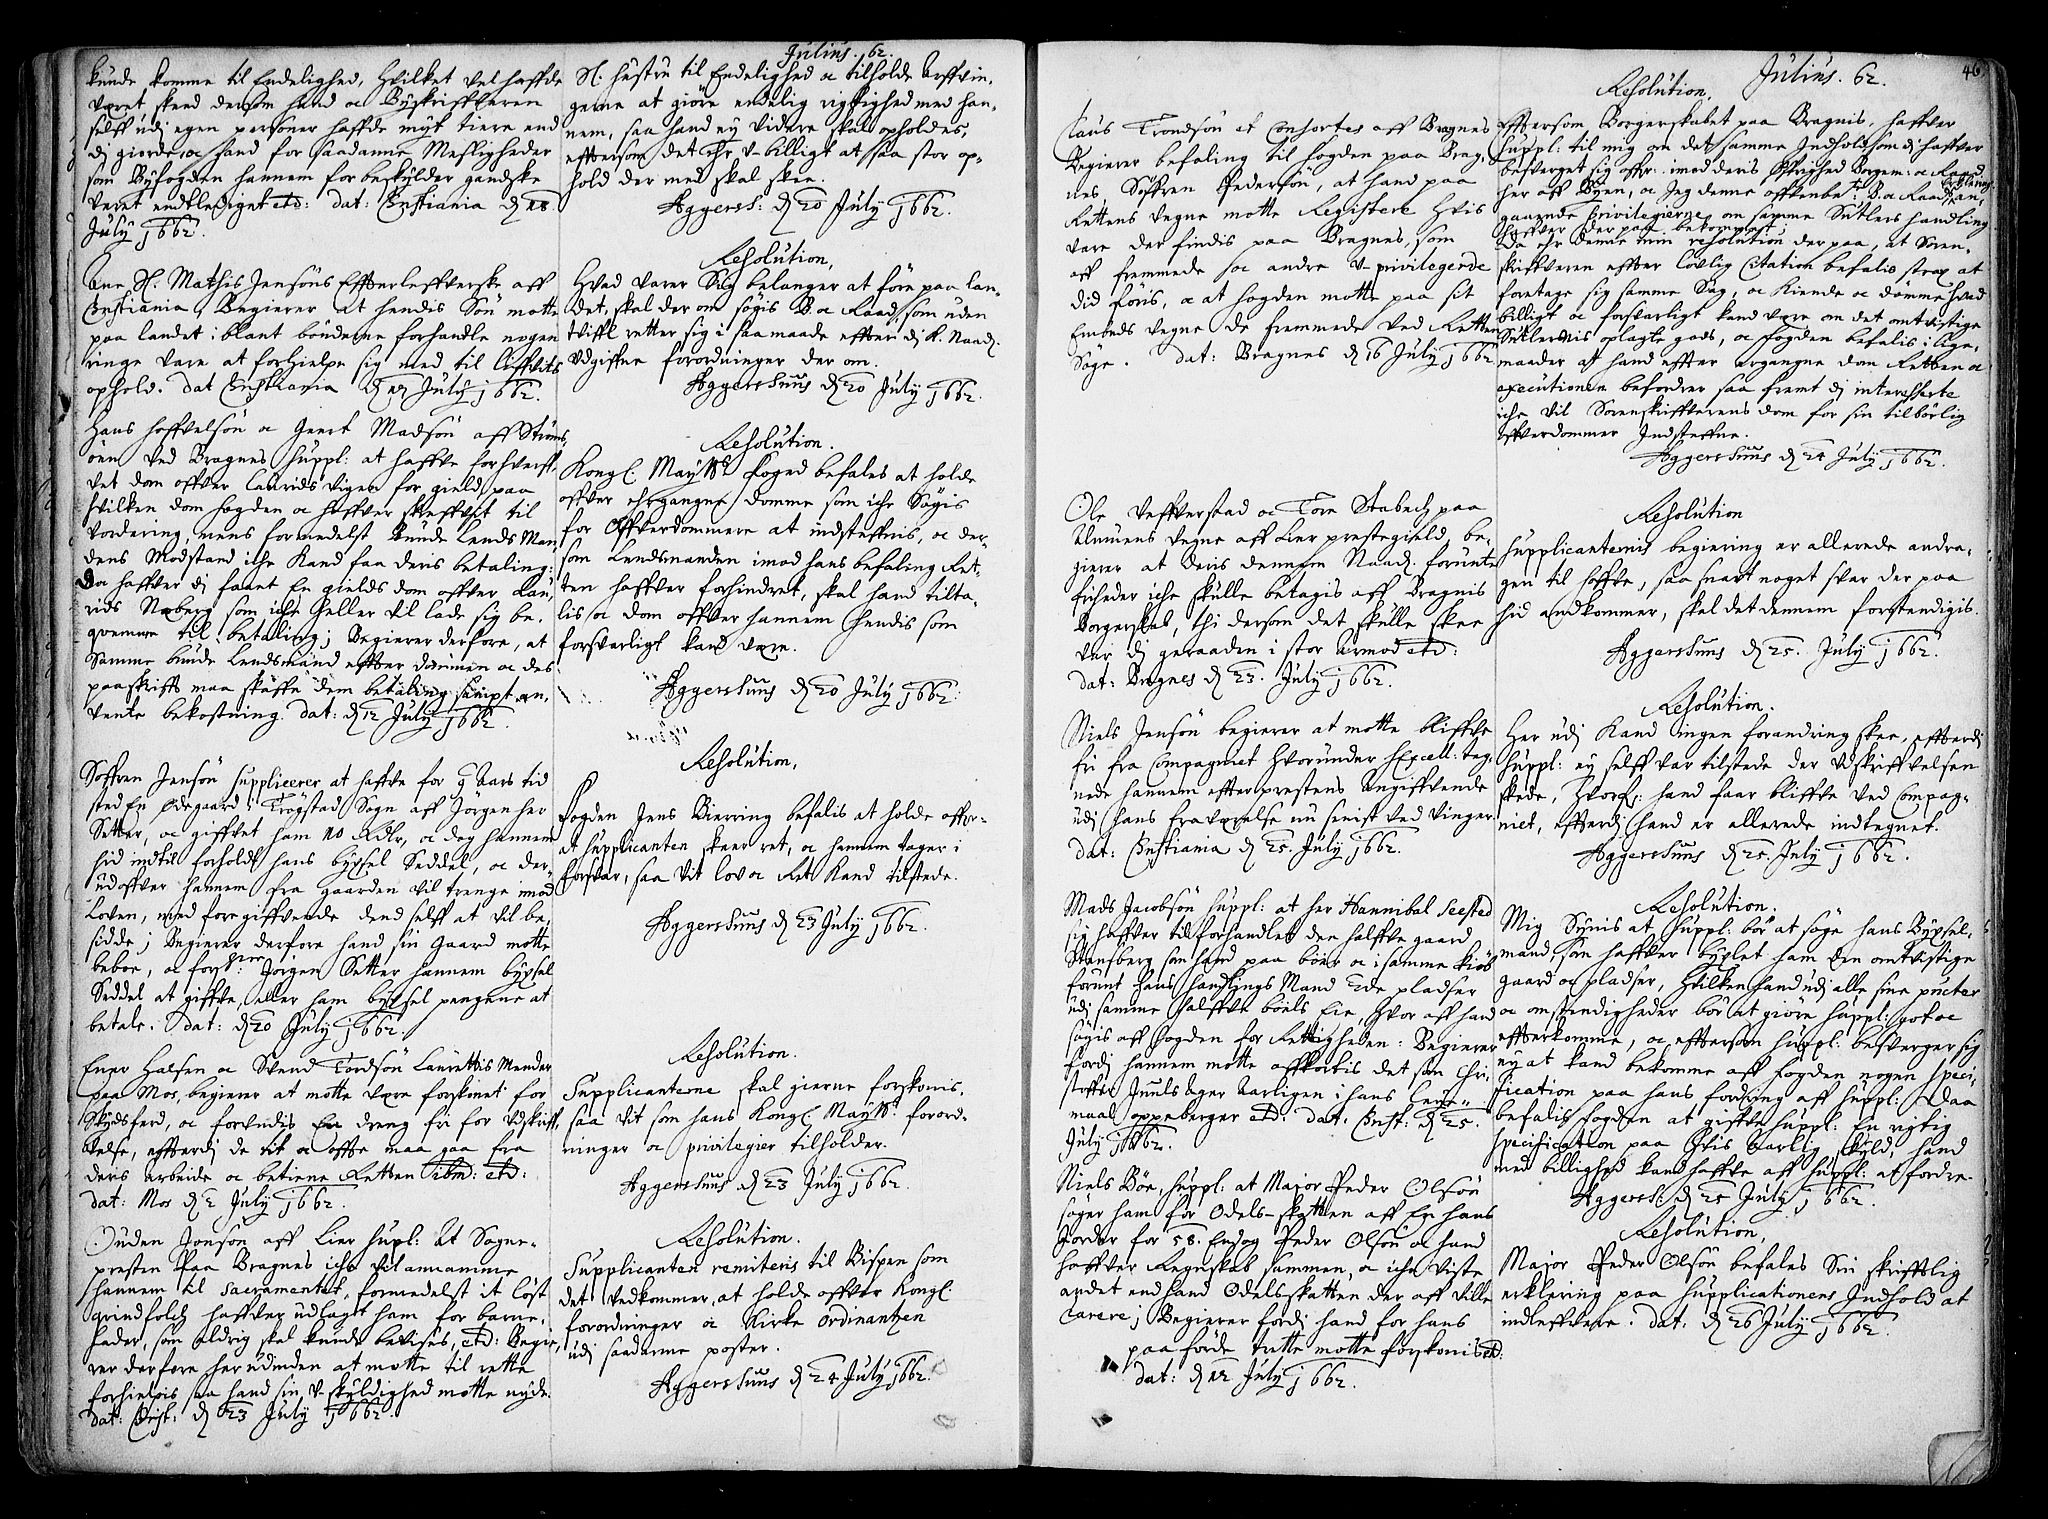 Julius. 62.
kunde komme til Endelighed, hvilket vel haffde
veret skeed dersom hand oc Byskriffveren
selff udj egen personer haffde mijt tiere end
dj giorde, oc hand for saadanne Mesligheder
som Byfogden hannem for beskylder gandske
veret endtlediget etc: dat: Christiania d 18
July 1662.
Ane Sl. Mathis Jensøns Effterleffverske aff
Christiania, Begierer at hendis Søn motte
paa landet iblant bønderne forhandle nogen
ringe vare at forhielpe sig med til liffvits
ophold. dat Christiania d 12 July 1662.
Hans Hoffvelsøn oc Geert Madsøn aff Strøms,
øen ved Bragnes suppl: at haffve forhverff,
vet dom offver Laurids Vigen for gield, paa
hvilken dom fogden oc haffver skreffvet til
vordering, mens formedelst Knude Lends Man,
dens Modstand iche kand faa deris betaling:
Da haffver dj faaet En gields dom offver Lau,
rids Narberg som iche heller vil lade sig be,
qvemme til betalling; Begierer derfore, at
samme bunde lendsmand effter dommen oc des
paaskrifft maa skaffe dem betaling sampt an,
vente bekostning. dat: d 12 July 1662.
Søffren Jensøn supplicerer at haffve for 9 Aars tid
sted En Ødegaard i Trøgstad Sogn aff Jørgen her
Setter, oc giffvet ham 10 Rdlr, oc dog hannem
hid indtil forholdt hans bøxsel Seddel, oc der,
ud offver hannem fra gaarden vil trenge imod
Loven, med foregiffvende dend selff at vil be,
sidde; Begierer derfore hand sin Gaard motte
beboe, oc forschne: Jørgen Setter hannem bøxsel
Seddel at giffve, eller ham bøxsel pengene at
betale. dat: d 20 July 1662.
Ener Halsen oc Svend Tordsøn Laurettis Mender
paa Mos, begierer at motte være forskonet for
Skydsferd, oc forundis En dreng fri for udskriff,
velse, effterdj de tit oc offte maa gaa fra
deris arbeide oc betiene Retten ibm: etc:
dat: Mos d 2 July 1662.
Ouden Jonsøn aff Lier supl: At Sogne-
presten paa Bragnes iche vil annamme
hannem til Sacramentet, formedelst it løst
qvindfolch haffver udlagt ham for barne,
fader, som aldrig skal kunde bevises, etc: Begie,
rer derfore herudinden at motte til rette
forhielpis saa hand sin u-skyldighed motte nyde.
dat: Crist: d 23 July 1662.
Sl: hustru til Endelighed oc tilholde Arffvin-
gerne at giøre endelig rigtighed med han-
nem, saa hand ey videre skal opholdes,
efftersom det Er u-billigt at saa stor op-
hold der med skal skee.
Aggersh: d 20 July 1662.
Resolution,
Hvad varer Sig belanger at føre paa Lan-
det, skal der om søgis B. oc Raad, som uden
tviffl retter sig i saa maade effter dj K. Naad:
udgiffne forordninger der om.
Aggershuus d 20 July 1662.
Resolution.
Kongl: Maytts foged befales at holde
offver ehrgangne domme som iche Søgis
for Offverdommere at indsteffnis, oc der-
som Lendsmanden imod hans befaling Ret-
ten haffver forhindret, skal hand tilta-
lis oc dom offver hannem hendis som
forsvarligt kand være.
Aggershuus d 20 July 1662.
Resolution,
Fogden Jens Bierring befalis at holde offver-
at supplicanten skeer ret, oc hannem tager i
forsvar, saa vit lov oc Ret kand tilstede.
Aggershuus d 23 July 1662.
Resolution.
Supplicanterne skal gierne forskonis,
saa vit som hans Kongl Maytts: forord-
ninger oc privilegier tilholder.
Aggershuus d 23 July 1662.
Resolution.
Supplicanten remiteris til Bispen som
det vedkommer, at holde offver Kongl:
forordninger oc Kirke ordinantzen
udj saadanne poster.
Aggershuus d 24 July 1662.
Julius. 62.
46
Claus Trondsøn et Consortes aff Bragnes
Begierer befaling til fogden paa Brag,
nes, Søffren Pedersøn, at hand paa
Rettens vegne motte Registere hvis
vare der findis paa Bragnes, som
aff fremmede oc andre u-privilegerde
did føris, oc at fogden motte paa sit
Embeds vegne de fremmede ved Retten
Søge. dat: Bragnes d 16 July 1662
Ole Veffverstad oc Tore Stabech paa
Almuens vegne aff Lier prestegield, be-
gierer at deris dennem Naad: forunte
friheder iche skulle betagis aff Bragnis
Borgerskab, thi dersom det skulle skee
var dj geraaden i stor Armod etc:
dat: Bragnes d 23. July 1662.
Niels Jensøn begierer at motte bliffve
fri fra Compagniet hvorunder hExcell: teg,
nede hannem effter prestens angiffvende
udj hans fraværelse nu senist ved Vinger.
dat: Christiania d 25. July 1662.
Mads Jacobsøn suppl: at her Hannibal Seested
sig haffver tilforhandlet den halffve gaard
Stensberg som hand paa boer oc i samme kiøb
forunt hans handlings Mand 2de pladser
udj samme halffve bøels Eie, hvor aff hand
søgis aff fogden for Rettigheden: Begierer
fordi hannem motte affkortis det som Chri-
stoffer Juuls ager Aarligen i hans leye-
maal oppeberger etc: dat: Christ: d 25.
July 1662.
Niels Bøe, suppl: at Major Peder Olsøn
søger ham for Odels-skatten aff En hans
Jorder for 58. Endog Peder Olsøn oc hand
haffver Regnskab sammen, oc iche viste
andet end hand Odelsskatten der aff ville
Cavere; Begierer fordi hand for hans
paaførde trette motte forskonis etc:
dat: d 12 July 1662.
Resolution.
Efftersom Borgerskabet paa Bragnis, haffver
suppl: til mig om det samme Indhold som dj haffver
besverget sig offver imod deris Øffrighed Borgem: oc Raad
her aff Byen, oc Jeg denne offvenbete: B. oc Raads erklering
gaaende privilegierne om samme Sutlers handling
haffver der paa bekommet,
Da ehr denne min resolution der paa, at Soren-
skriffveren effter lovlig Citation befalis strax at
foretage sig samme Sag, oc kiende oc dømme hvad
billigt oc forsvarligt kand være om det omtvistige
Sutlernis oplagte gods, oc fogden befalis i lige,
maader at hand effter ergangne dom Retten oc
executionen befordrer saa fremt dj interesserte
iche vil Sorenskriffverens dom for sin tilbørlig
offverdommer Indsteffne.
Aggershuus d 24 July 1662.
Resolution
Supplicanternis begiering er allerede andra-
gen til hoffve, saa snart noget svar der paa
hid andkommer, skal det dennem forstendigis.
Aggershuus d 25. July 1662.
Resolution.
Her udj kand ingen forandring skee, effterdj
suppl: ey selff var tilstede der udskriffvelsen
skede, hvorfor: hand faar bliffve ved Compag-
niet, effterdj hand er allerede indtegnet.
Aggershuus d 25. July 1662.
Resolution.
Mig Synis at suppl: bør at søge hans Bøxsel,
mand, som haffver bøxlet ham den omtvistige
gaard oc pladser, hvilken hand udj alle sine puncter
oc omstendigheder bør at giøre suppl: got oc
effterkomme, oc efftersom suppl: besverger sig
ey at kand bekomme aff fogden nogen speci,
fication paa hans fordring aff suppl: Daa
befalis fogden at giffve suppl: En rigtig
specification paa hvis Aarlig skyld, hand
med billighed kand haffve aff suppl: at fordre.
Aggersh: d 25 July 1662.
Resolution,
Major Peder Olsøn befales Sin skrifftlig
erklering paa supplicationens Indhold at
indleffvere. dat. d 26 July 1662.